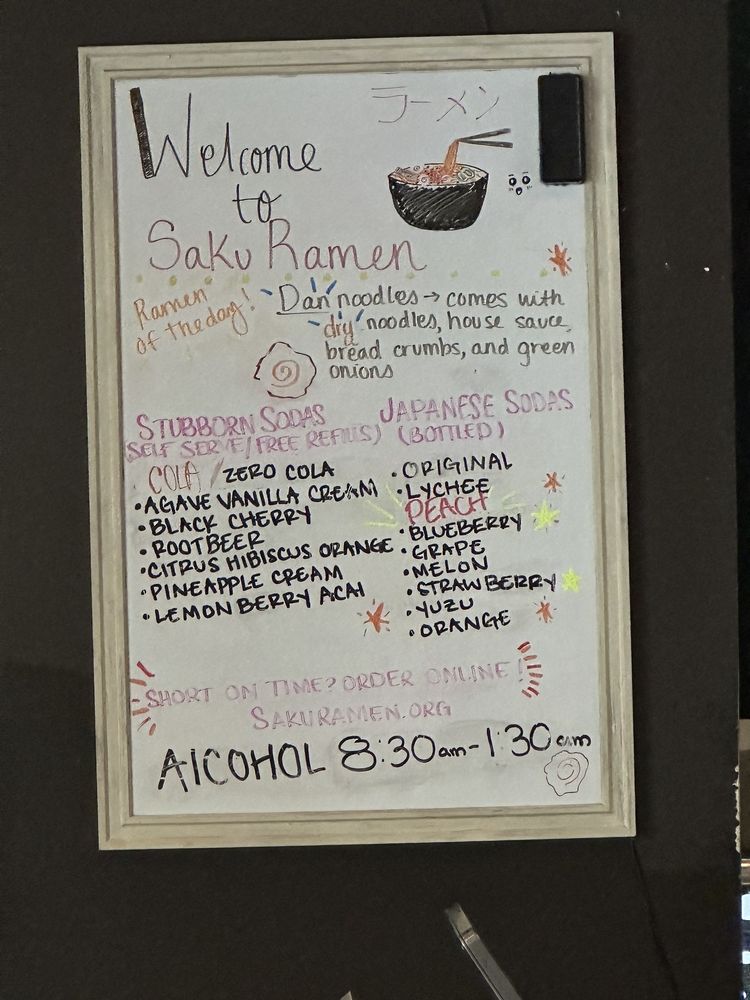 ラーメン
Welcome
to
Saku Ramen
Ramen
of the day!
Dan noodles → comes with
dry noodles, house sauce,
bread crumbs, and green
onions
STUBBORN SODAS
(SELF SERVE/FREE REFILLS)
COLA / ZERO COLA
•AGAVE VANILLA CREAM
•BLACK CHERRY
•ROOTBEER
•CITRUS HIBISCUS ORANGE
•PINEAPPLE CREAM
•LEMON BERRY ACAI
JAPANESE SODAS
(BOTTLED)
•ORIGINAL
•LYCHEE
PEACH
•BLUEBERRY
•GRAPE
•MELON
•STRAWBERRY
•YUZU
•ORANGE
SHORT ON TIME? ORDER ONLINE!
SAKURAMEN.ORG
AlCOHOL 8:30am-1:30am